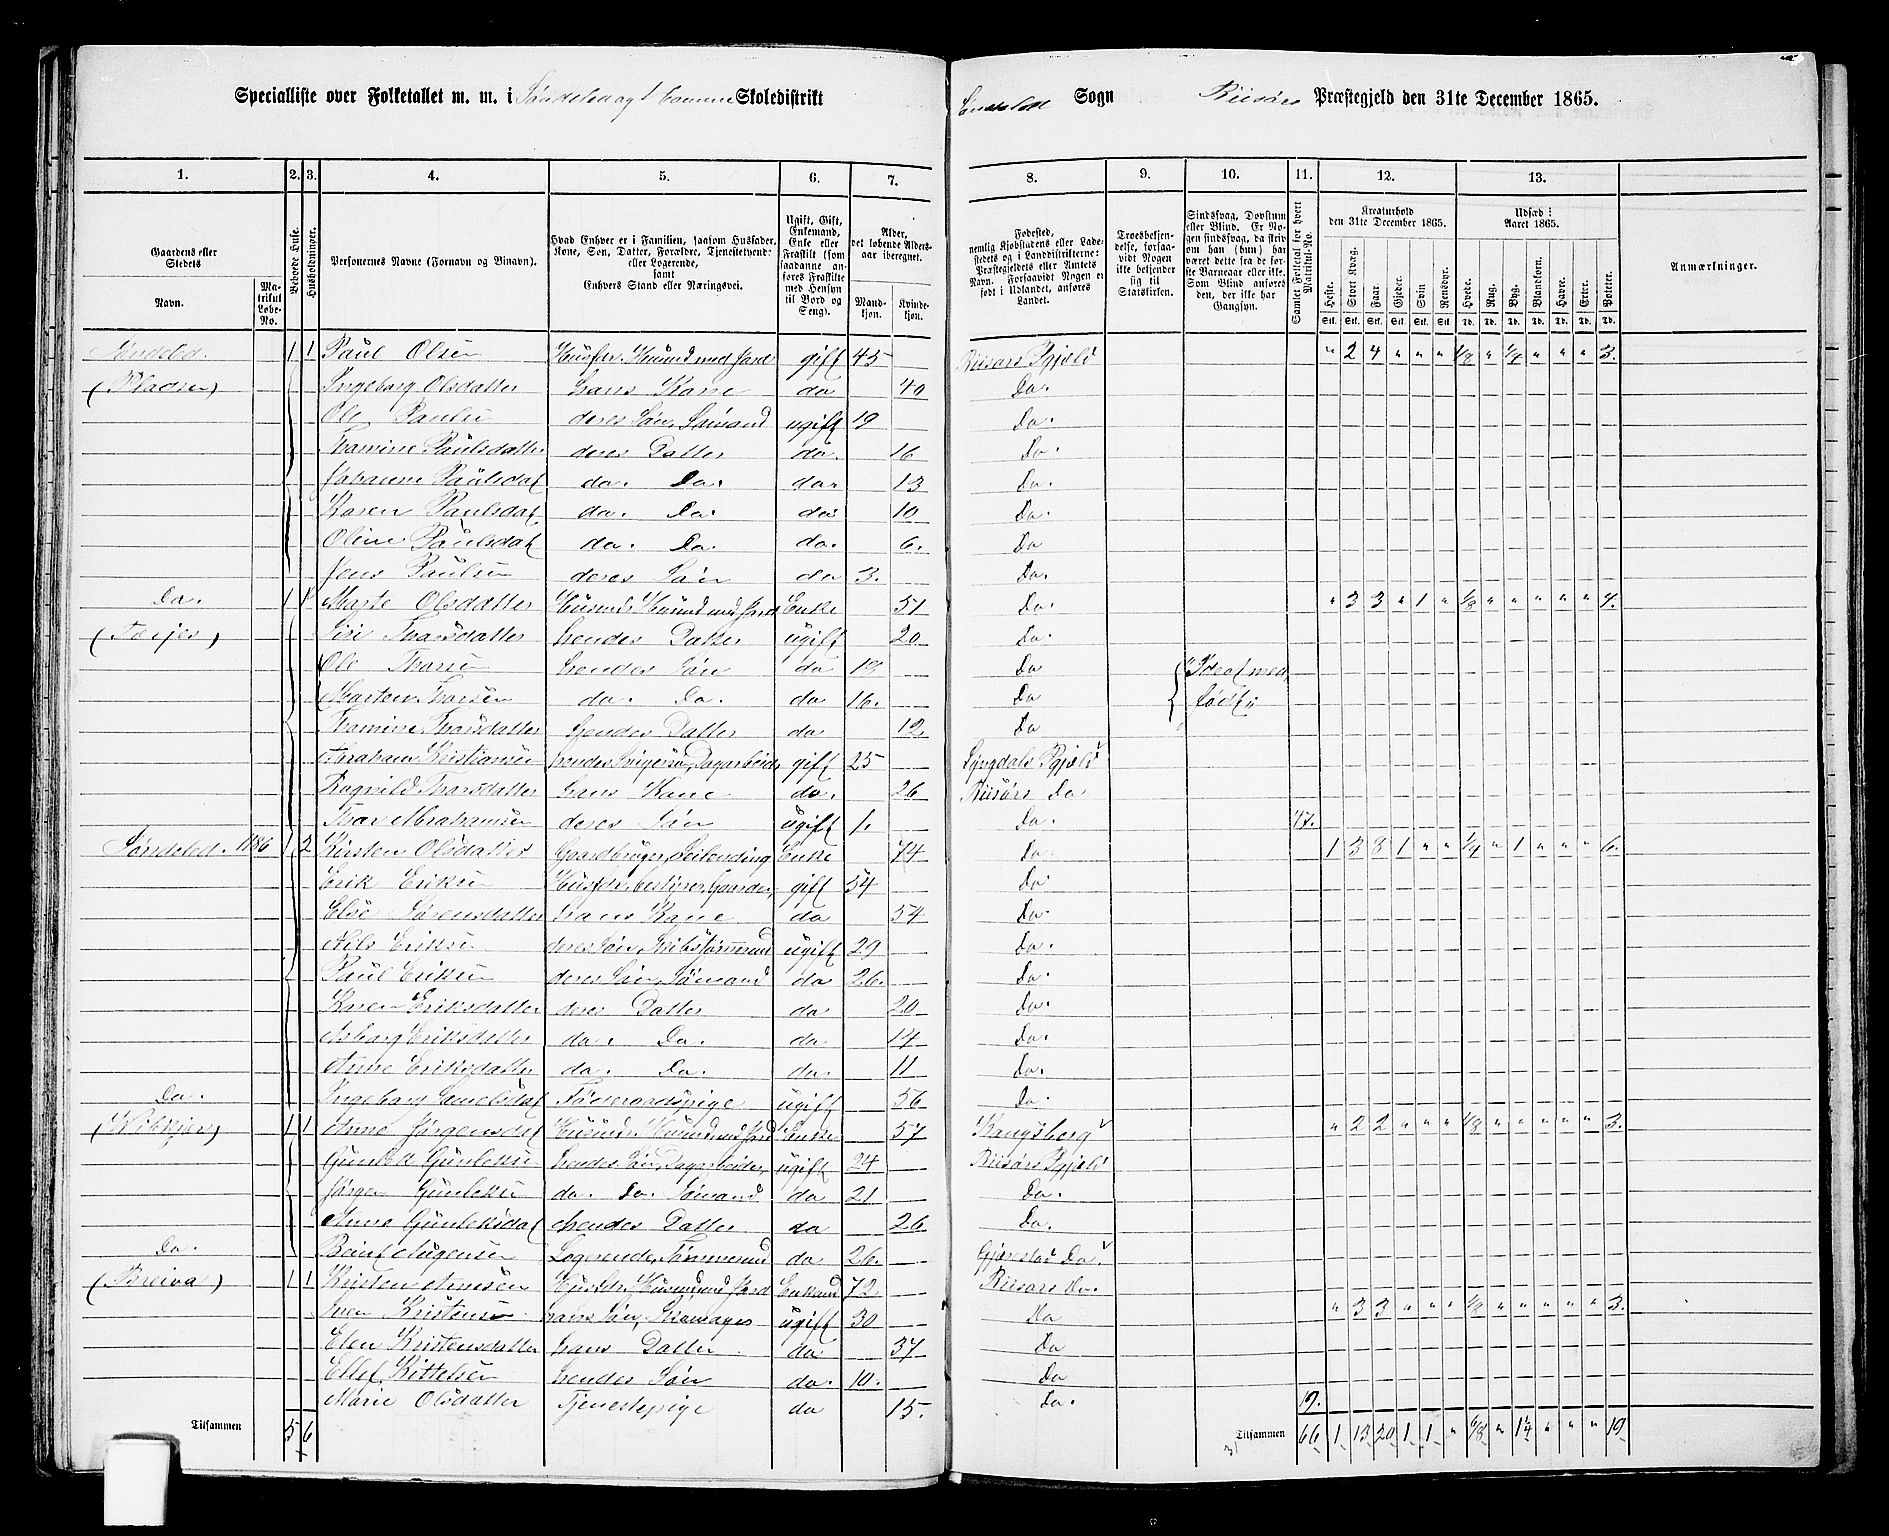 Specialliste over Folketallet m. m. i Søndeled Skoledistrikt
Søndeled Sogn Riisøer Præstegjeld den 31te December 1865.
1. 2. 3. 4. 5. 6. 7. 8. 9. 10. 11. 12. 13.
Gaardens eller Stedets
Navn.
Matrikul Løbe-No.
Beboede Huse.
Husholdninger.
Personernes Navne (Fornavn og Binavn).
Hvad Enhver er i Familien, saasom Husfader, Kone, Søn, Datter, Forældre, Tjenestetyende eller Logerende,
samt
Enhvers Stand eller Næringsvei.
Ugift, Gift, Enkemand, Enke eller Fraskilt (som saadanne anføres Fraskilte med Hensyn til Bord og Seng).
Alder, det løbende Aldersaar iberegnet.
Mandkjøn.
Kvindekjøn.
Fødested,
nemlig Kjøbstadens eller Ladestedets og i Landdistrikterne: Præstegjeldets eller Amtets Navn. Forsaavidt Nogen er født i Udlandet, anføres Landet.
Troesbekjendelse, forsaavidt Nogen ikke bekjender sig til Statskirken.
Sindssvag, Døvstum eller Blind. Er Nogen sindssvag, da skriv om han (hun) har været dette fra de første Barneaar eller ikke. Som Blind anføres den, der ikke har Gangsyn.
Samlet Folketal for hvert Matrikul-No.
Kreaturhold den 31te December 1865.
Heste. Stort Kvæg. Faar. Gjeder. Svin. Rensdyr.
Udsæd i Aaret 1865.
Hvede. Rug. Byg. Blandkorn. Havre. Erter. Poteter.
Anmærkninger.
Søndeled. 1 1 Paul Olsen Husfdr. Husmd med Jord gift 45 Riisørs Pgjeld " 2 4 " " " 1/8 " 1/4 " " " 3.
Ingeborg Olsdatter hans Kone do 40 Do.
Ole Paulsen deres Søn, Sømand ugift 19 Do.
Thomine Paulsdatter deres Datter do. 16 Do.
Johanne Paulsdat do. Do. do. 13 Do.
Karen Paulsdat do. Do. do 10 Do.
Oline Paulsdat do. Do. do. 6. Do
Jens Paulsen deres Søn do 3. Do.
Do. 1 1 Marte Olsdatter Husmd. Husmd med Jord Enke 51 Do. " 3 3 " 1 " 1/8 " " " " " 4.
(Terjes) Siri Thorsdatter hendes Datter ugift 20 Do.
Ole Thorsen hendes Søn do Do "Idiot med
Morten Thorsen do. Do. do 16. Do født"
Thomine Thorsdatter hendes Datter do 12 Do
Abraham Kristiansen hendes Svigersøn, Dagarbeider gift 25 Lyngdals Pgjeld
Ragnild Thorsdatter hans Kone do. 26 Riisørs Do
Thor Abrahamsen deres Søn ugift 1. Do. 17.
Søndeled. 186 1 2 Kirsten Olsdatter Gaardbruger, Selveier Enke 74 Do. 1 3 8 1 " " 1/4 " 1 " " " 6.
Erik Eriksen Husfdr. bestyrer Gaarden, gift 54 Do
Else Sørensdatter hans Kone do 54 Do.
Nils Eriksen deres Søn, Skibstømrmd ugift 29 Do.
Paul Eriksen deres Søn, Sømand do 26. Do.
Karen Eriksdatter deres Datter do 20 Do.
Asborg Eriksdatter do. Do. do 14 Do.
Anne Eriksdatter do. Do. do. 11 Do.
Do. Ingeborg ugift 56 Do.
1 1 Anne Jørgensdat Husmd. Husmd med Jord Enke 57 Kongsberg " 2 2 " " " 1/8 " " " " " 3.
Gunlek Gunleksen hendes Søn, Dagarbeider, ugift 24 Riisørs Pgjeld
Jørgen Gunleksen do. Do. Sømand do 21 Do.
Anne Gunleksdat hendes Datter do 26 Do.
Do. Logerende, Tømrmd do 26. Gjerestad Do.
(Breiva) 1 1 Kristen Husfdr. Husmd med Jord Enkmd 72. Riisørs Do.
Kristensen hans Søn, Skomager ugift 30 Do " 3 3 " " " 1/8 " " " " " 3.
Elen Kristensdatter hans Datter do 37 Do
Ellef Kittelsen hendes Søn do. 10. Do
Marie Olsdatter Tjenestepige do 15. Do. 19.
Tilsammen 5 6 Tilsammen 66 1 13 20 1 1 " 6/8 " 1 1/4 " " " 19